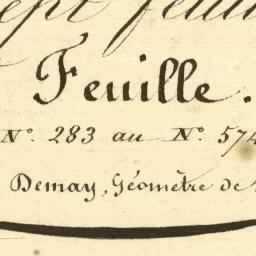 sept feuil
Feuille.
N.º 283 au N.º 574
Demay, Géomètre de